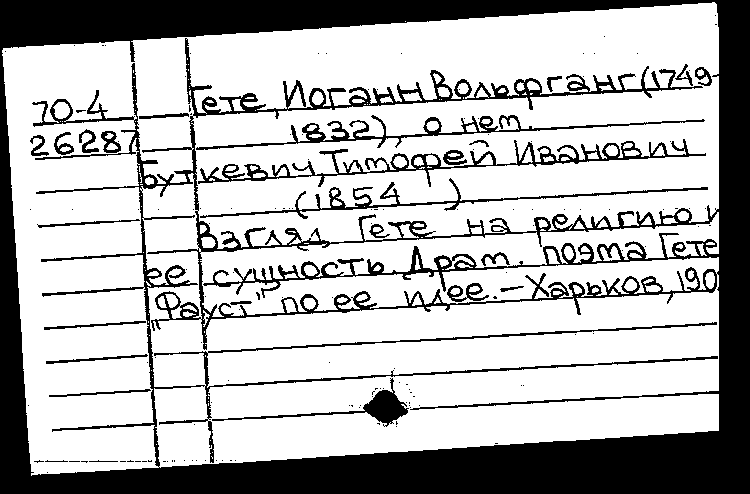 70-4 Гете, Иоганн Вольфганг (1749-
26287 1832), о нем.
Буткевич, Тимофей Иванович
(1854 )
Взгляд Гете на религию и
ее сущность. Драм. поэма Гете
"Фауст" по ее идее. - Харьков, 190